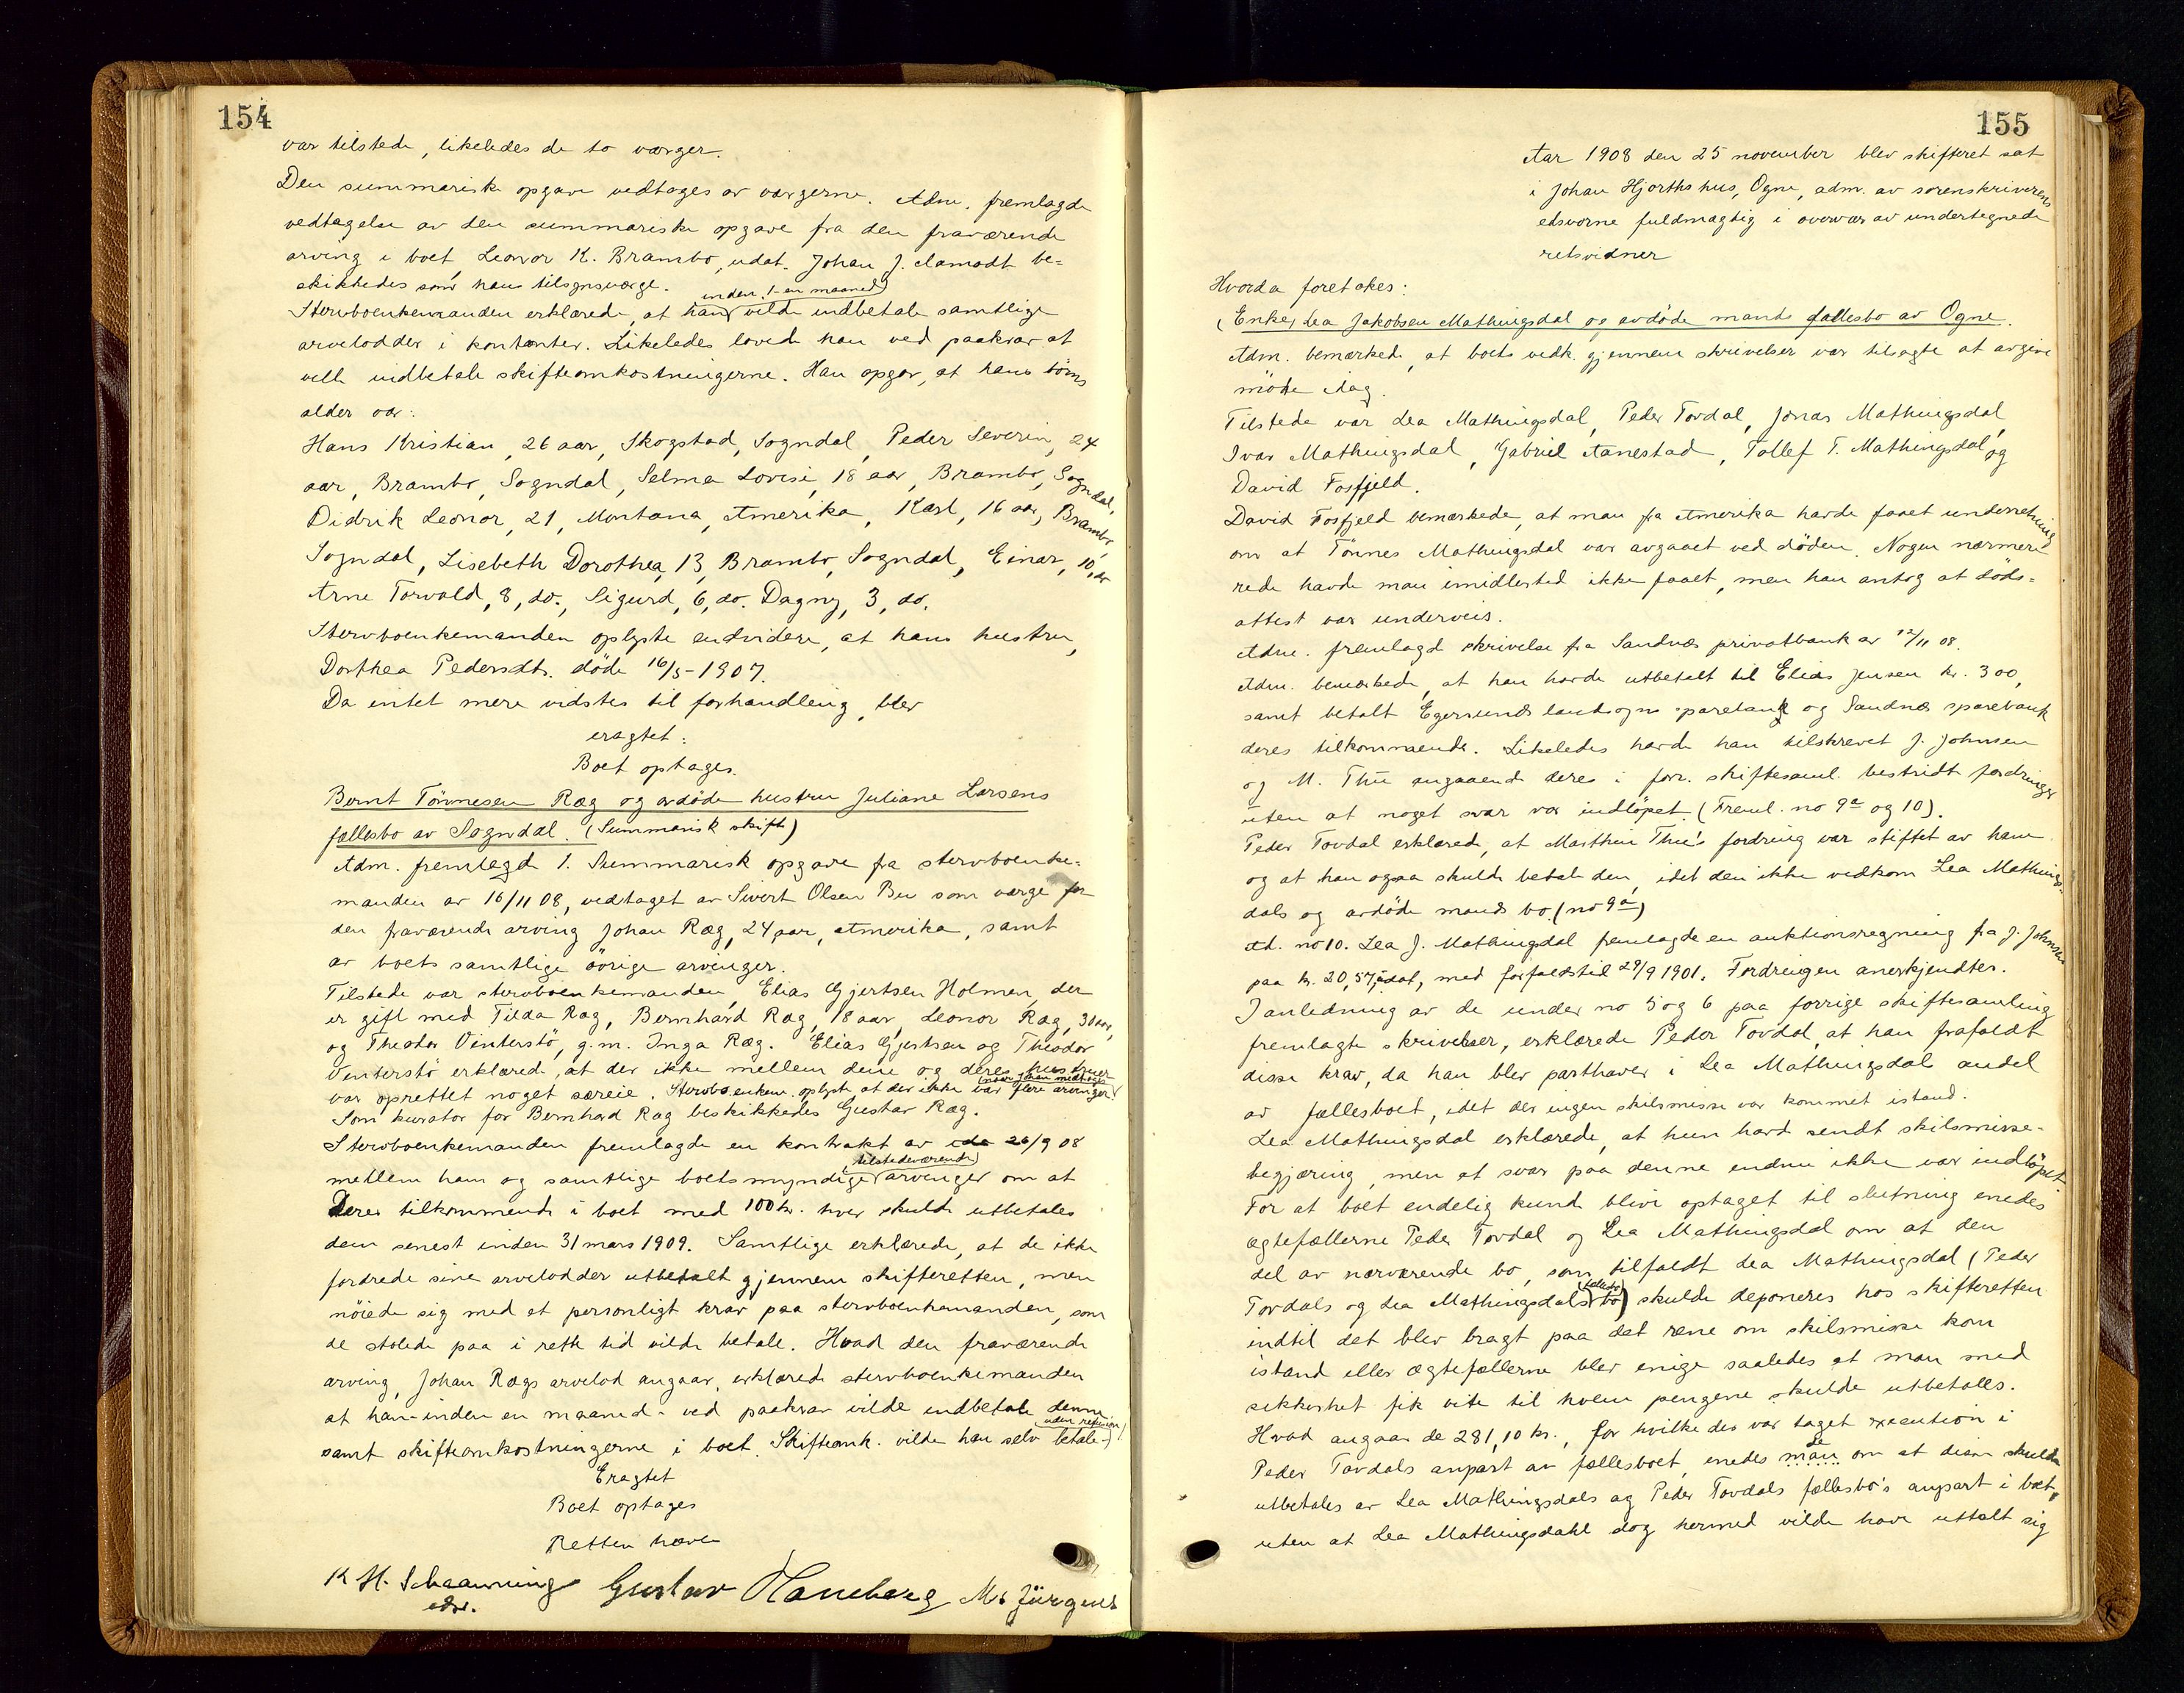 154
var tilstede, likeledes de to værger.
Den summariske opgave vedtages av værgerne. Adm. fremlagde
vedtagelse av den summariske opgave fra den fraværende
arving i boet, Leonor K. Brambo, udat. Johan J. Aamodt be=
skikkedes som hans tilsynsværge.
inden 1 - en maaned
Stervboenkemanden erklærede, at han vilde indbetale samtlige
arvelodder i kontanter. Likeledes lovede han ved paakrav at
ville indbetale skifteomkostningerne. Han opgav, at hans börns
alder var:
Hans Kristian, 26 aar, Skogstad, Sogndal, Peder Severin, 24
aar, Brambo, Sogndal, Selma Lovise, 18 aar, Brambo, Sogndal,
Didrik Leonor, 21, Montana, Amerika, Karl, 16 aar, Brambo,
Sogndal, Lisebeth Dorothea, 13, Brambo, Sogndal, Einar, 10, do
Arne Torvald, 8, do., Sigurd, 6, do. Dagny, 3, do.
Stervboenkemanden oplyste endvidere, at hans hustru,
Dorthea Pedersdts. döde 16/5-1907.
Da intet mere vidstes til forhandling, blev
eragtet:
Boet optages.
Bernt Tönnesen Ræg og avdöde hustru Juliane Larsens
fællesbo av Sogndal. (Summarisk skifte)
Adm. fremlagde 1. Summarisk opgave fra stervboenke=
manden av 16/11 08, vedtaget av Sivert Olsen Bu som værge for
den fraværende arving Johan Ræg, 24 aar, Amerika, samt
av boets samtlige övrige arvinger.
Tilstede var stervboenkemanden, Elias Gjertsen Holmen, der
er gift med Tilda Ræg, Bernhard Ræg, 18 aar, Leonor Ræg, 30 aar,
og Theodor Vinterstö, g.m. Inga Ræg. Elias Gjertsen og Theodor
Vinterstö erklærede, at der ikke mellem dem og deres hustruer
var oprettet noget særeie. Stervboenkem. oplyste at der ikke var flere arvinger
Som kurator for Bernhard Ræg beskikkedes Gustav Ræg.
Stervboenkemanden fremlagde en kontrakt av 26/9 08
tilstedeværende
mellem ham og samtlige boets myndige arvinger om at
Deres tilkommende i boet med 100 kr. hver skulde utbetales
dem senest inden 31 mars 1909. Samtlige erklærede, at de ikke
fordrede sine arvelodder utbetalt gjennem skifteretten, men
nöiede sig med et personligt krav paa stervboenkemanden, som
de stolede paa i rette tid vilde betale. Hvad den fraværende
arving, Johan Rægs arvelod angaar, erklærede stervboenkemanden
at han - inden en maaned - ved paakrav vilde indbetale denne
uden refusion
samt skifteomkostningerne i boet. Skifteomk. vilde han selv betale
Eragtet
Boet optages
Retten hævet
K H. Schaanning Gustav Haneberg M. Jürgens
edsv.
155
Aar 1908 den 25 november blev skifteret sat
i Johan Hjorths hus, Ogne, adm. av sorenskriverens
edsvorne fuldmægtig i overvær av undertegnede
retsvidner
Hvorda foretokes:
(Enke) Lea Jakobsen Mathingsdal og avdöde mands fællesbo av Ogne.
Adm. bemærkede, at boets vedk. gjennem skrivelser var tilsagte at avgive
möte idag.
Tilstede var Lea Mathingsdal, Peder Tovdal, Jonas Mathingsdal,
Ivar Mathingsdal, Gabriel Aanestad, Tollef T. Mathingsdal og
David Fosfjeld.
David Fosfjeld bemærkede, at man fra Amerika havde faaet underretning
om at Tönnes Mathingsdal var avgaaet ved döden. Nogen nærmere
rede havde man imidlertid ikke faaet, men han antog at döds=
attest var underveis.
Adm. fremlagde skrivelse fra Sandnæs privatbank av 12/11 08.
Adm. bemærkede, at han havde utbetalt til Elias Jensen kr. 300,
samt betalt Egersunds landsogns sparebank og Sandnæs sparebank
deres tilkommende. Likeledes havde han tilskrevet J. Johnsen
og M. Thu angaaende deres i forr. skiftesaml. bestridte fordringer
uten at noget svar var indlöpet. (Freml. no 9a og 10).
Peder Tovdal erklærede, at Marthin Thu's fordring var stiftet av ham
og at han ogsaa skulde betale den, idet den ikke vedkom Lea Mathings-
dals og avdöde mands bo. (no 9a)
Ad. no 10. Lea J. Mathingsdal fremlagde en auktionsregning fra J. Johnsen
paa kr. 20,57, udat, med forfaldstid 29/9 1901. Fordringen anerkjendtes.
I anledning av de under no 5 og 6 paa forrige skiftesamling
fremlagte skrivelser, erklærede Peder Tovdal, at han frafaldt
disse krav, da han blev parthaver i Lea Mathingsdals andel
av fællesboet, idet der ingen skilsmisse var kommet istand.
Lea Mathingsdal erklærede, at hun havde sendt skilsmisse-
begjæring, men at svar paa denne endnu ikke var indlöpet
For at boet endelig kunde blive optaget til slutning enedes
ægtefællerne Peder Tovdal og Lea Mathingsdal om at den
del av nærværende bo, som tilfaldt Lea Mathingsdal (Peder
fælles
Tovdals og Lea Mathingsdals bo) skulde deponeres hos skifteretten
indtil det blev bragt paa det rene om skilsmisse kom
istand eller ægtefællerne blev enige saaledes at man med
sikkerhet fik vite til hvem pengene skulde utbetales.
Hvad angaar de 281,10 kr., for hvilke der var taget execution i
de
Peder Tovdals anpart av fællesboet, enedes man om at disse skulde
utbetales av Lea Mathingsdals og Peder Tovdals fællesbo's anpart i boet,
uten at Lea Mathingsdahl dog hermed vilde have uttalt sig